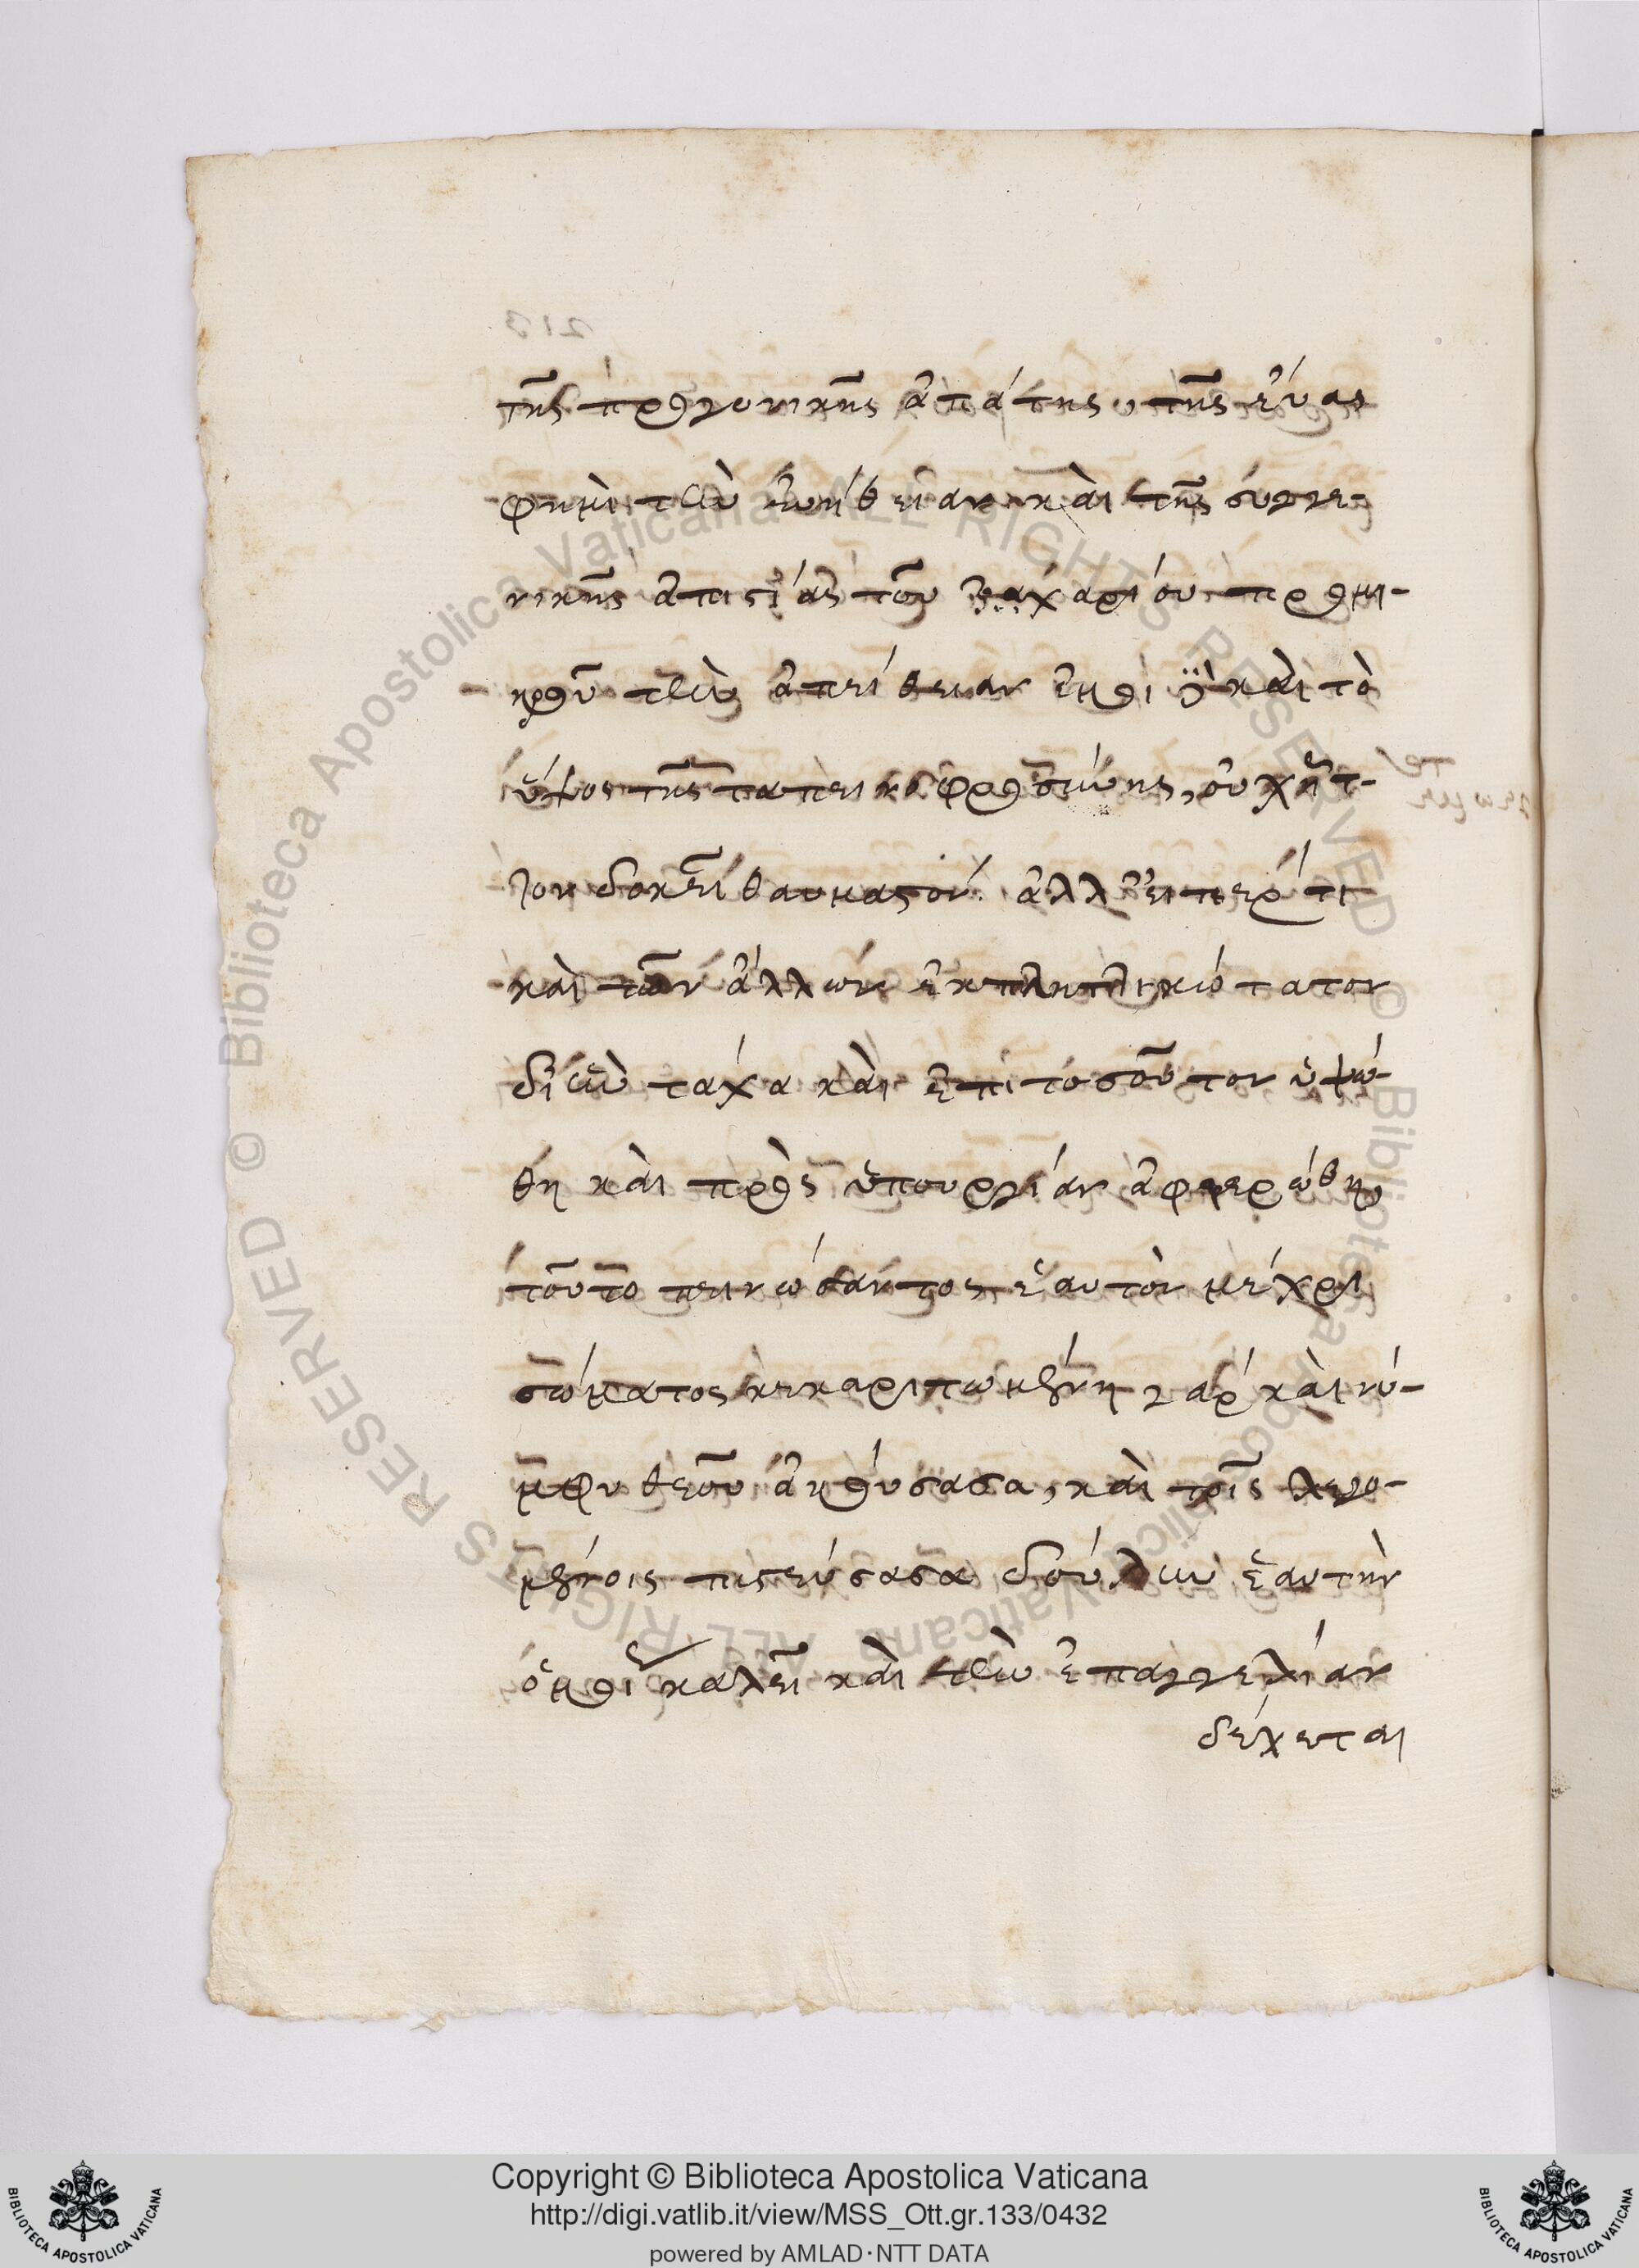 τῆς προγονικῆς ἀπάτης, τῆς εὔας
φημὶ τὴν εὐήθειαν καὶ τῆς συγγε-
νικῆς ἀπιστίας τοῦ ζαχαρίου προμι-
κροῦ τὴν ἀπείθειαν ἐμοὶ δὲ καὶ τὸ
ὕψος τῆς ταπεινοφροσύνης, οὐχ ἧττ-
ον δοκεῖ θαυμαστόν. ἀλλ εἴπερ τι
καὶ τῶν ἄλλων ἐκπληκτικώτατον
δι ἣν τάχα καὶ ἐπι τοσοῦτον ὑψώ-
θη καὶ πρὸς ὑπουργίαν ἀφιερώθη,
τοῦ ταπεινώσαντος ἑαυτὸν μέχρι
σώματος κεχαριτωμένη γὰρ καὶ νύ-
μφη θεοῦ ἀκούσασα, καὶ τοῖς λεγο-
μένοις πιστεύσασα δούλην ἑαυτὴν
ὅμως καλεῖ καὶ τὴν ἐπαγγελίαν
δέχεται
213
Copyright © Biblioteca Apostolica Vaticana
http://digi.vatlib.it/view/MSS_Ott.gr.133/0432
powered by AMLAD·NTT DATA
BIBLIOTECA APOSTOLICA VATICANA
BIBLIOTECA APOSTOLICA VATICANA
© Biblioteca Apostolica Vaticana ALL RIGHTS RESERVED
© Biblioteca Apostolica Vaticana ALL RIGHTS RESERVED